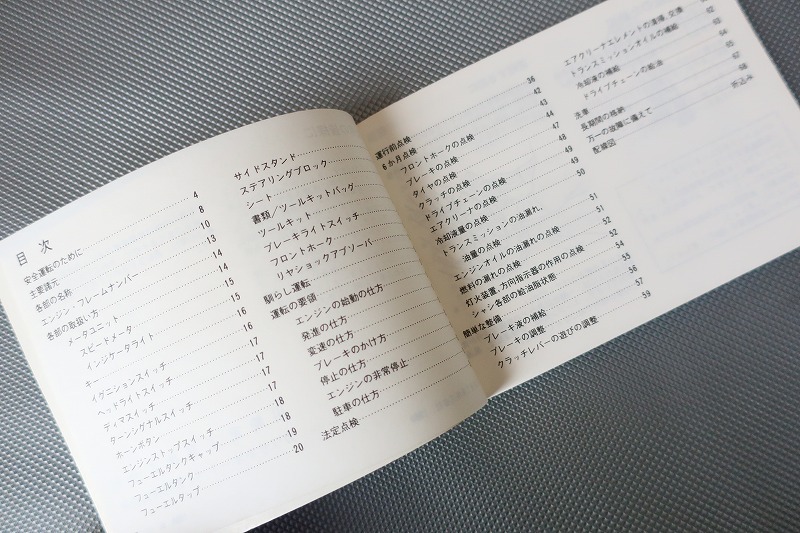 目次
安全運転のために 4
主要諸元 8
各部の名称 10
エンジン、フレームナンバー 13
各部の取扱い方 14
メータユニット 14
スピードメータ 15
インジケータライト 15
キー 16
イグニションスイッチ 16
ヘッドライトスイッチ 17
ディマスイッチ 17
ターンシグナルスイッチ 17
ホーンボタン 17
エンジンストップスイッチ 18
フューエルタンクキャップ 18
フューエルタンク 19
フューエルタップ 20
サイドスタンド
ステアリングブロック
シート
書類/ツールキットバッグ
ツールキット
ブレーキライトスイッチ
フロントホーク
リヤショックアブソーバ
馴らし運転
運転の要領
エンジンの始動の仕方
発進の仕方
変速の仕方
ブレーキのかけ方
停止の仕方
エンジンの非常停止
駐車の仕方
法定点検
運行前点検 36
6か月点検 42
フロントホークの点検 43
ブレーキの点検 44
タイヤの点検 47
クラッチの点検 48
ドライブチェーンの点検 49
エアクリーナの点検 49
冷却液量の点検 50
トランスミッションの油漏れ、
油量の点検 51
エンジンオイルの油漏れの点検 51
燃料の漏れの点検 52
灯火装置、方向指示器の作用の点検 52
シャシ各部の給油脂状態 54
簡単な整備 55
ブレーキ液の補給 56
ブレーキの調整 57
クラッチレバーの遊びの調整 59
エアクリーナエレメントの清掃、交換
トランスミッションオイルの補給 62
冷却液の補給
ドライブチェーンの給油 64
洗車 65
長期間の格納 67
万一の故障に備えて 68
配線図 折込み